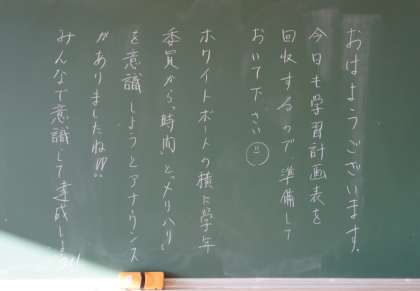 おはようございます。
今日も学習計画表を
回収するので、準備して
おいて下さい
ホワイトボードの横に学年
委員から、「時間」と「メリハリ」
を意識しようとアナウンス
がありましたね!!!
みんなで意識して達成しよう!!